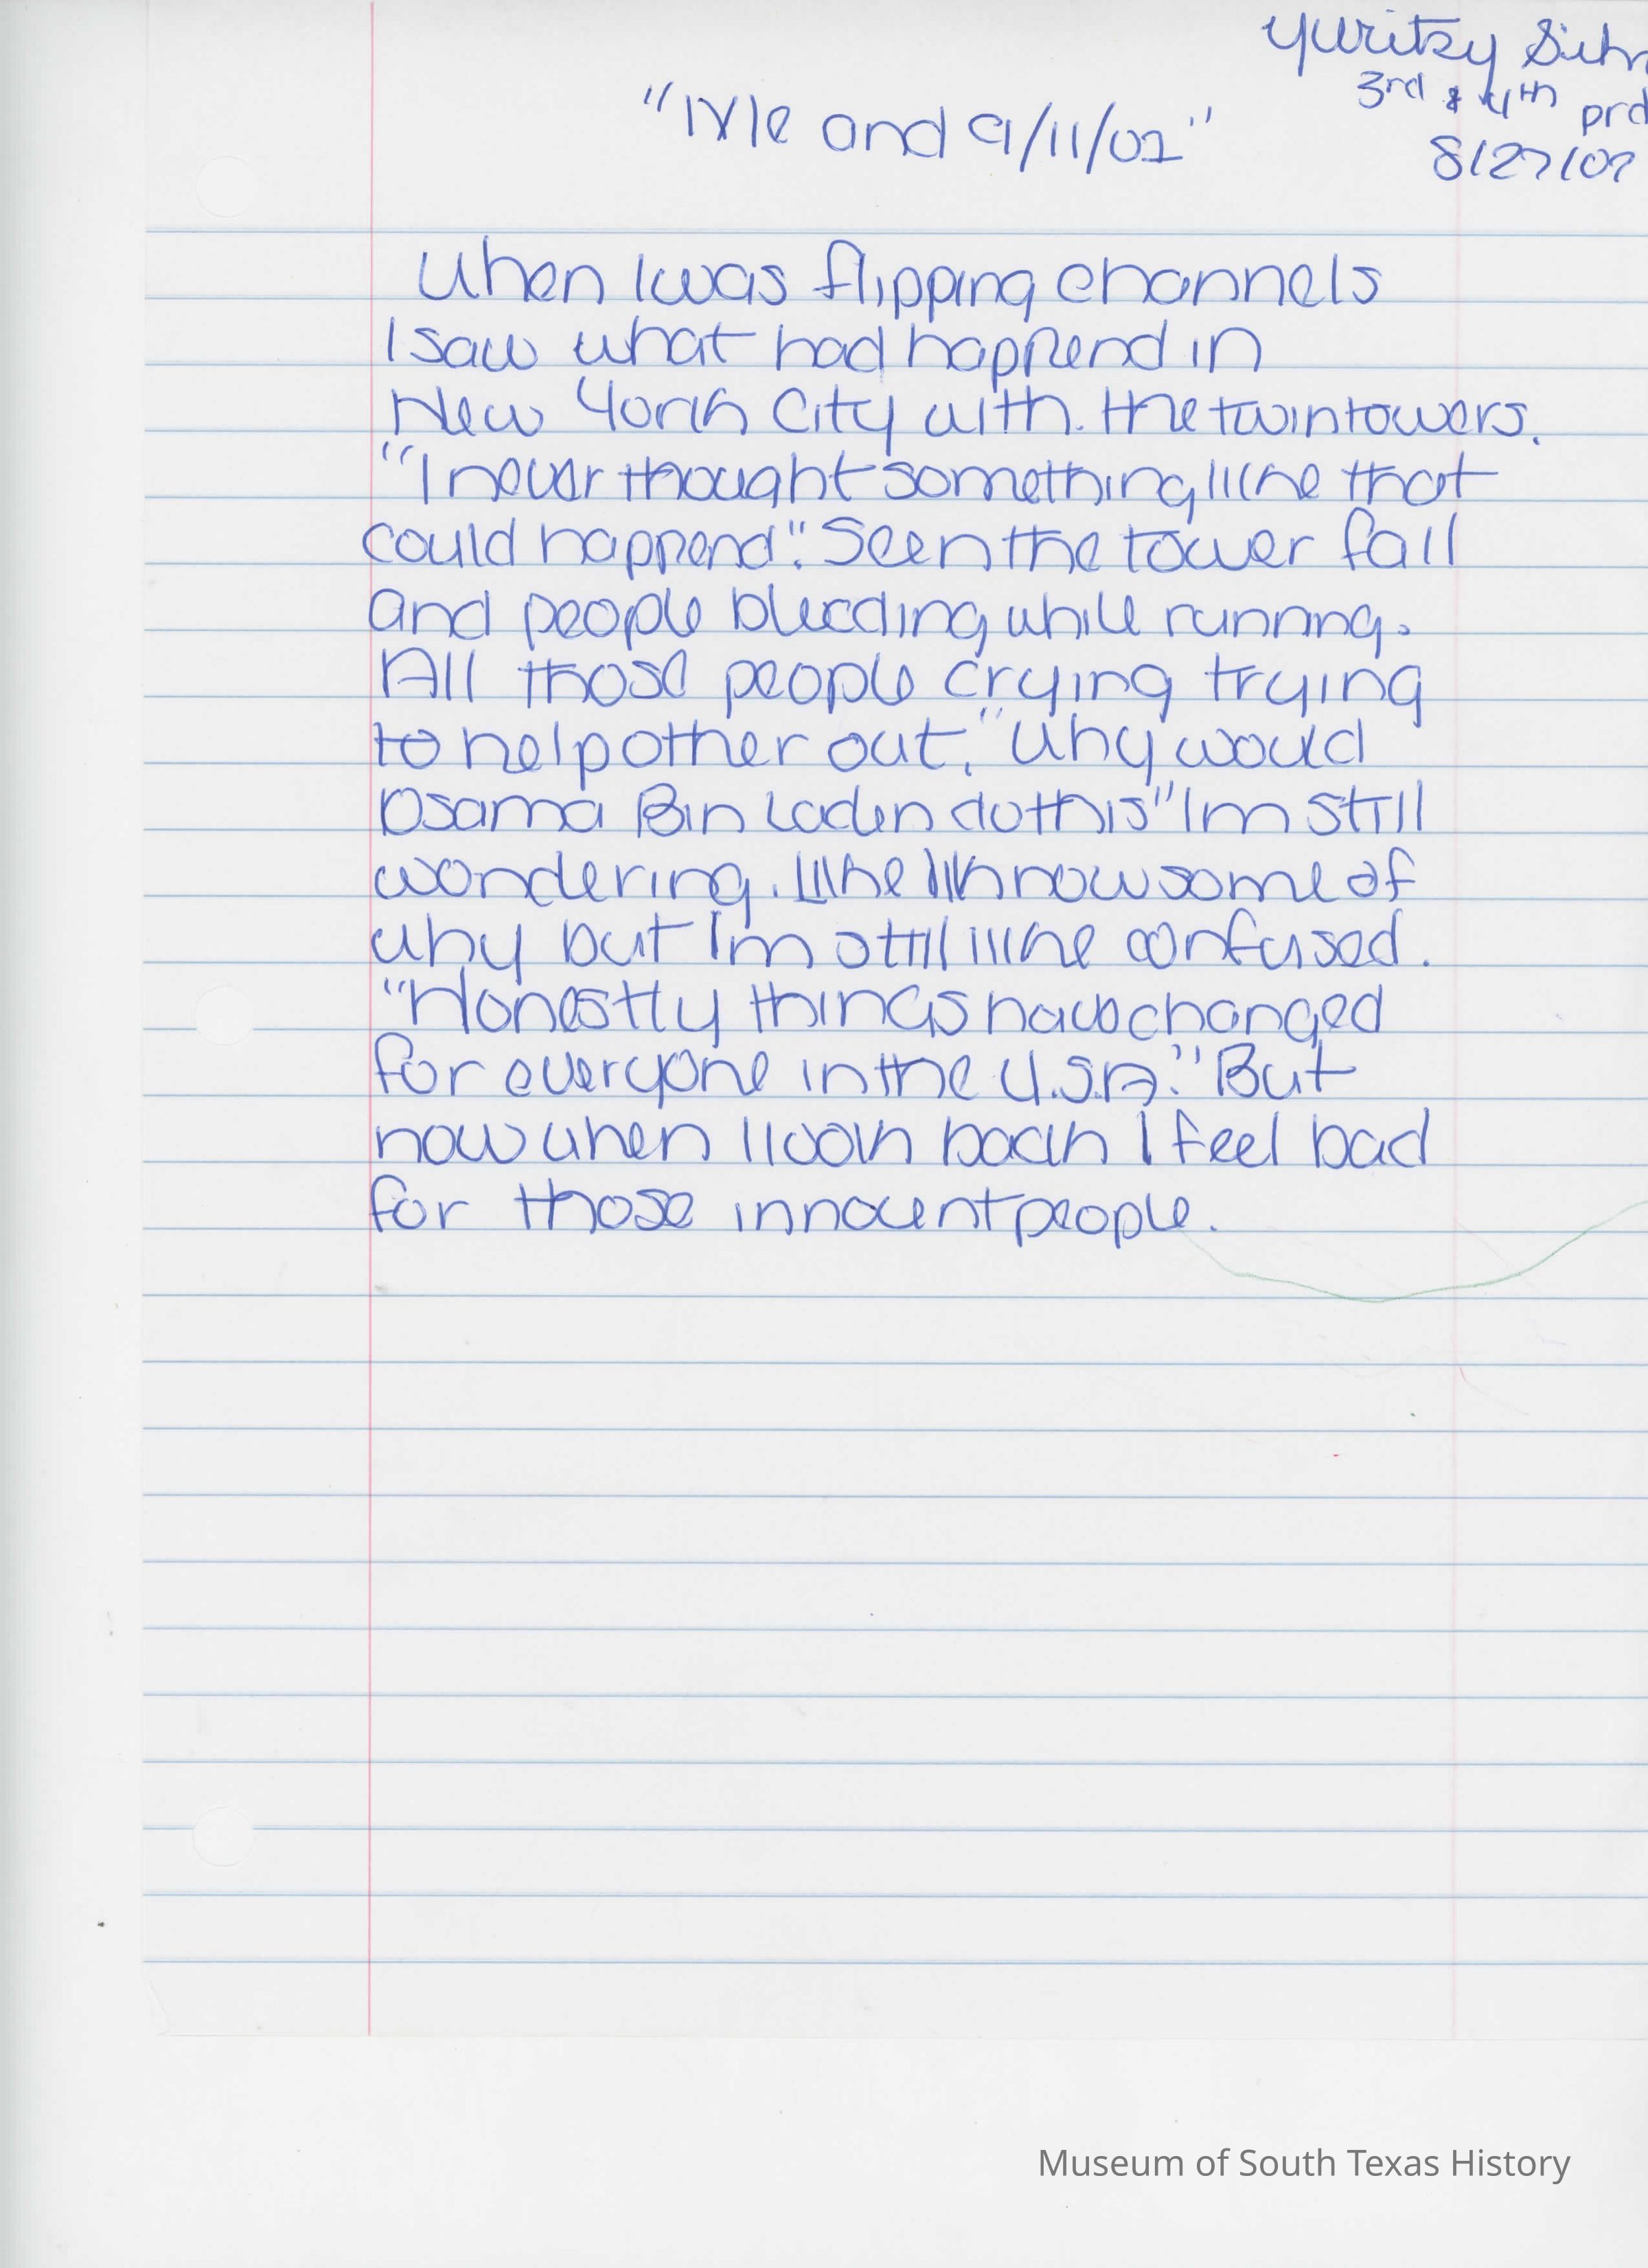 Yuritzy
3rd & 4th prd
8/27/07
"Me and 9/11/01"
When I was flipping channels
I saw what had happend in
New York City with. the twin towers.
"I never thought something like that
could happend". Seen the tower fall
and people bleeding while running.
All those people crying trying
to help other out. "Why would
Osama Bin Laden do this" Im still
wondering. Like I know some of
why but I'm still like confused.
"Honestly things have changed
for everyone in the U.S.A." But
now when I look back I feel bad
for those innocent people.
Museum of South Texas History